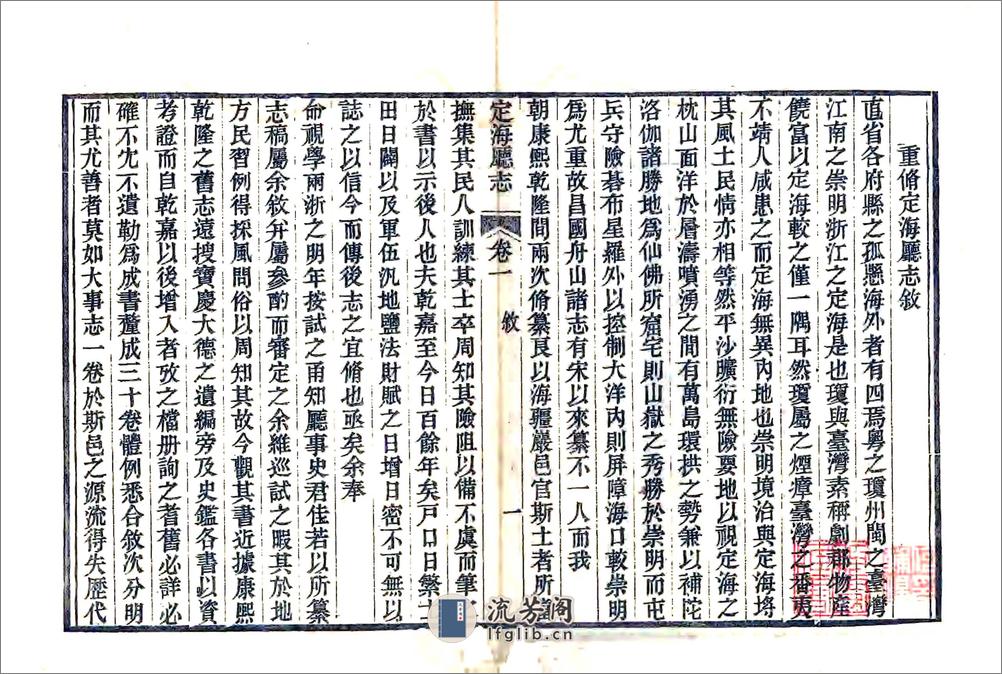 重脩定海廳志敘
直省各府縣之孤懸海外者有四焉粵之瓊州閩之臺灣
江南之崇明浙江之定海是也瓊與臺灣素稱劇郡物產
饒富以定海較之僅一隅耳然瓊屬之煙瘴臺灣之番夷
不靖人咸患之而定海無異內地也崇明境治與定海埒
其風土民情亦相等然平沙曠衍無險要地以視定海之
枕山面洋於層濤噴湧之間有萬島環拱之勢兼以補陀
洛伽諸勝地爲仙佛所窟宅則山嶽之秀勝於崇明而屯
兵守險碁布星羅外以控制大洋內則屏障海口較崇明
爲尤重故昌國舟山諸志有宋以來纂不一人而我
朝康熙乾隆間兩次脩纂良以海疆巖邑官斯土者所
定海廳志
卷一
敘
一
撫集其民人訓練其士卒周知其險阻以備不虞而筆
於書以示後人也夫乾嘉至今日百餘年矣戶口日繁土
田日闢以及軍伍汛地鹽法財賦之日增日密不可無以
誌之以信今而傳後志之宜脩也亟矣余奉
命視學兩浙之明年按試之甬知廳事史君佳若以所纂
志稿屬余敘弁屬參酌而審定之余維巡試之暇其於地
方民習例得採風問俗以周知其故今觀其書近據康熙
乾隆之舊志遠搜寶慶大德之遺編旁及史鑑各書以資
考證而自乾嘉以後增入者攷之檔册詢之耆舊必詳必
確不尣不遺勒爲成書釐成三十卷體例悉合敘次分明
而其尤善者莫如大事志一卷於斯邑之源流得失歷代
流芳閣
lfglib.cn